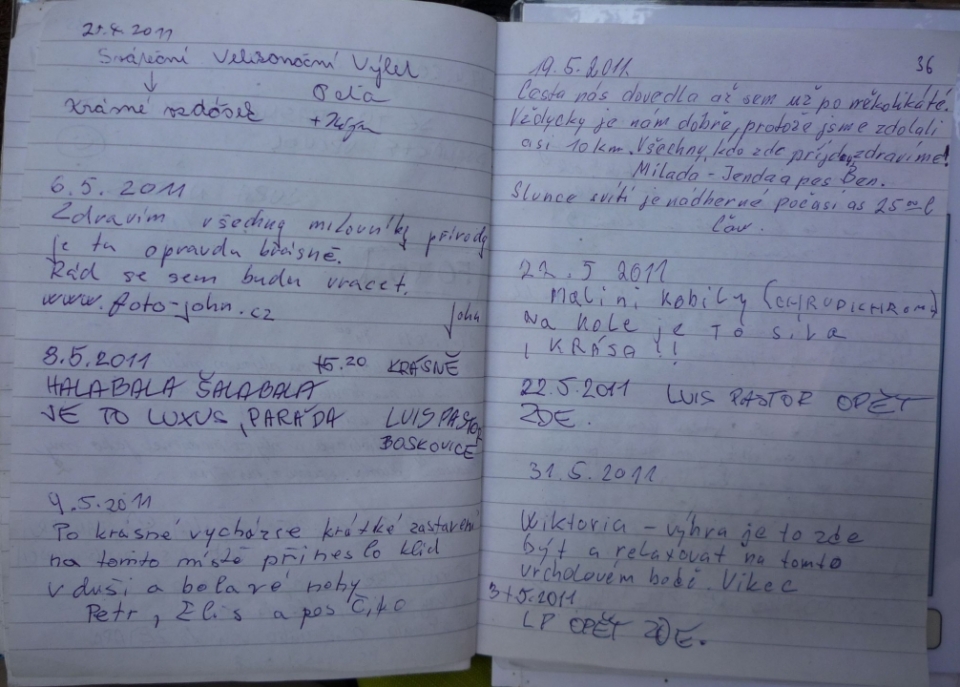 2011
Velikonoční Výlet
Krásné
6.5. 2011
Zdravím všechny milovníky přírody
je tu opravdu krásně.
Rád se sem budu vracet.
www.foto-john.cz
john
8.5.2011 15.20 KRÁSNĚ
HALABALA ŠALABALA
JE TO LUXUS, PARÁDA LUIS PASTOR
BOSKOVICE
9.5.2011
Po krásné vycházce krátké zastavení
na tomto místě přineslo klid
v duši a bolavé nohy
Petr, Eliš a pes
36
19.5.2011
Cesta nás dovedla až sem už po několikáté.
Vždycky je nám dobře, protože jsme zdolali
asi 10 km. Všechny, kdo zde přijdou, zdravíme!
Milada - Jenda a pes Ben.
Slunce svítí je nádherné počasí as 25
22.5 2011
Malini kobily (CHRUDICHROM)
Na kole je TO síla
i KRÁSA !!
22.5.2011 LUIS PASTOR OPĚT
ZDE.
31.5.2011
Wiktoria - výhra je to zde
být a relaxovat na tomto
vrcholovém bodě. Vikec
31.5.2011
LP OPĚT ZDE.